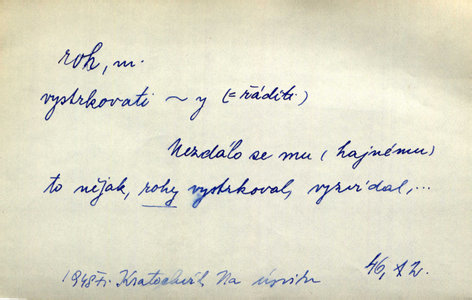 roh, m.
vystrkovati ~ y (= řáditi)
Nezdálo se mu (hajnému)
to nějak, rohy vystrkoval, vyzvídal,...
46,
1948 Fr. Kratochvíl, Na úsvitu